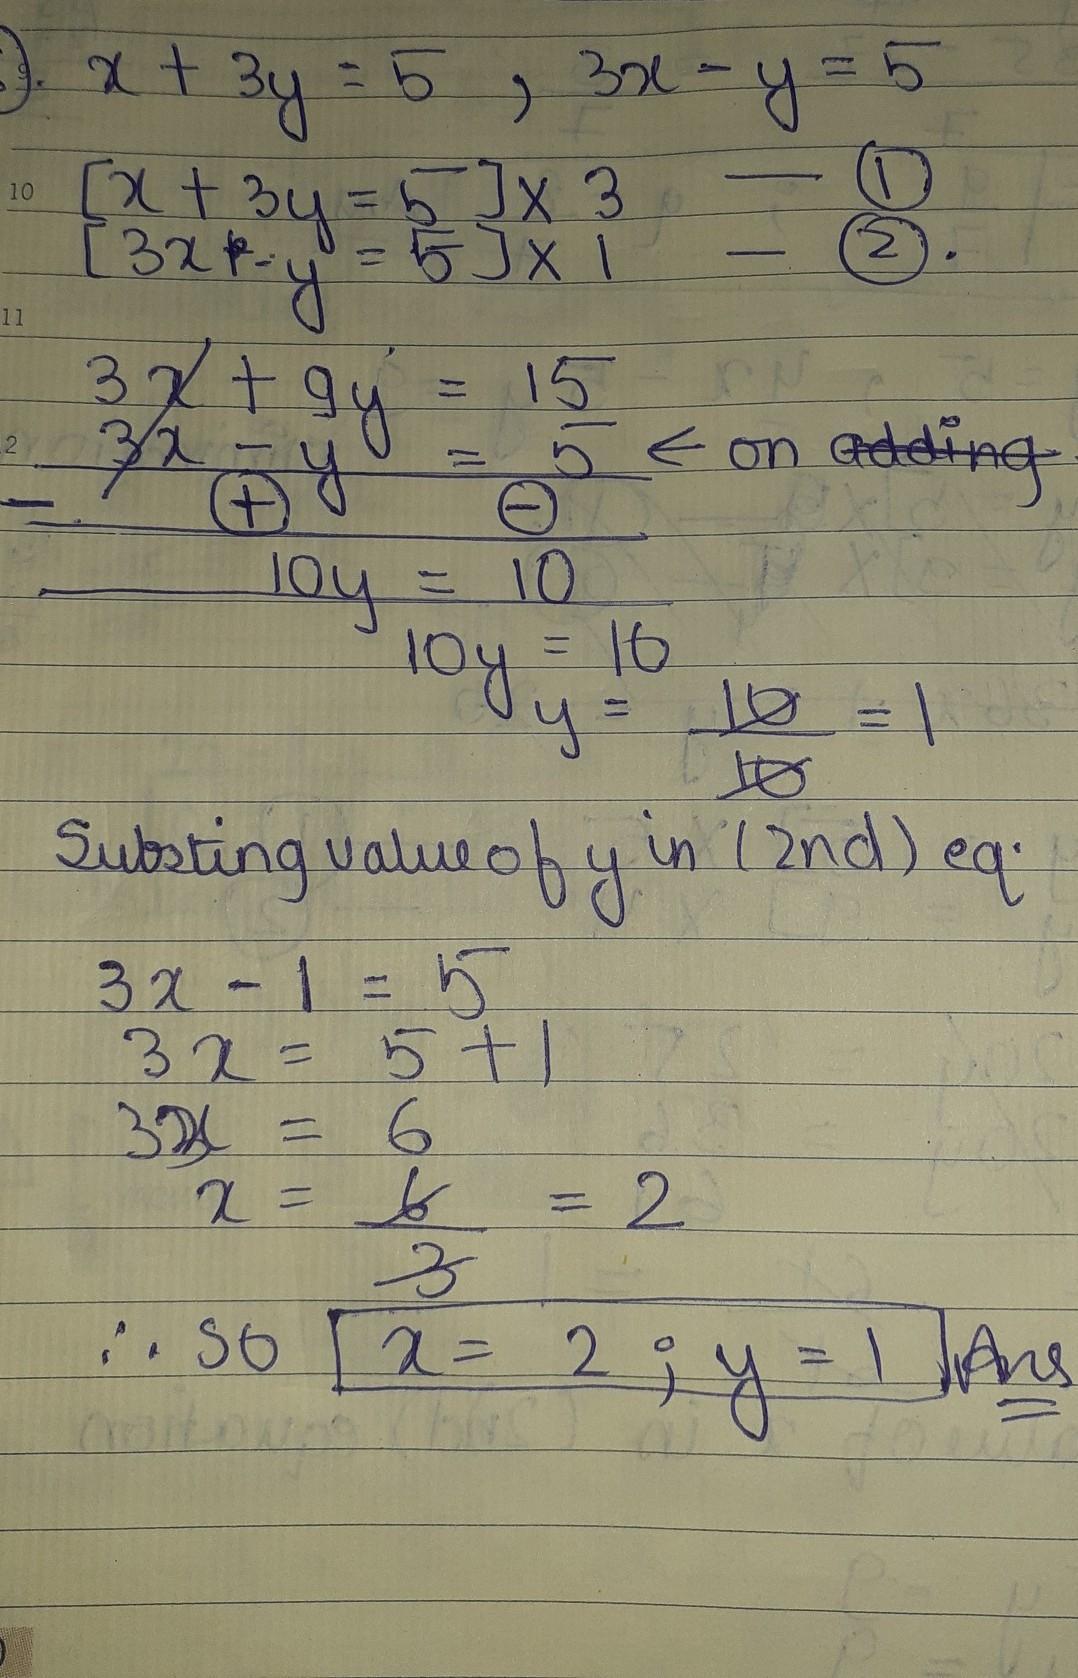 9). x + 3y = 5 , 3x - y = 5
10 [x + 3y = 5] x 3 — ①
[3x - y = 5] x 1 — ②.
11
3x + 9y = 15
2 3x - y = 5 ← on adding
- ⊕ ⊖
10y = 10
10y = 10
y = 10/10 = 1
Substing value of y in (2nd) eq.
3x - 1 = 5
3x = 5 + 1
3x = 6
x = 6/3 = 2
∴ so x = 2 ; y = 1 Ans